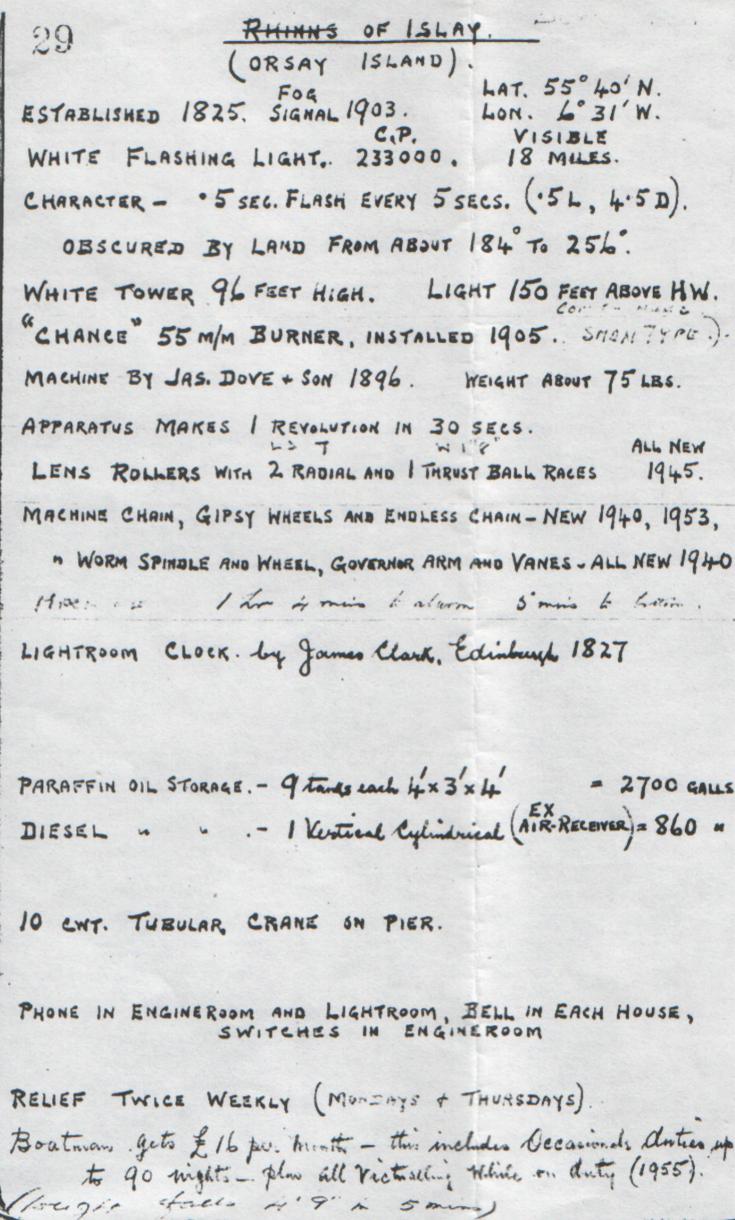 29
RHINNS OF ISLAY.
(ORSAY ISLAND).
FOG LAT. 55° 40' N.
ESTABLISHED 1825. SIGNAL 1903. LON. 6° 31' W.
C.P. VISIBLE
WHITE FLASHING LIGHT. 233000. 18 MILES.
CHARACTER - ·5 SEC. FLASH EVERY 5 SECS. (·5 L, 4·5 D).
OBSCURED BY LAND FROM ABOUT 184° TO 256°.
WHITE TOWER 96 FEET HIGH. LIGHT 150 FEET ABOVE HW.
"CHANCE" 55 M/M BURNER, INSTALLED 1905. TYPE).
MACHINE BY JAS. DOVE + SON 1896. WEIGHT ABOUT 75 LBS.
APPARATUS MAKES 1 REVOLUTION IN 30 SECS.
ALL NEW
LENS ROLLERS WITH 2 RADIAL AND 1 THRUST BALL RACES 1945.
MACHINE CHAIN, GIPSY WHEELS AND ENDLESS CHAIN - NEW 1940, 1953,
" WORM SPINDLE AND WHEEL, GOVERNOR ARM AND VANES - ALL NEW 1940
1 hr 4 mins to alarm 5 mins to
LIGHTROOM CLOCK. by James Clark, Edinburgh 1827
PARAFFIN OIL STORAGE. - 9 tanks each 4' x 3' x 4' = 2700 GALLS
EX
DIESEL " " . - 1 Vertical Cylindrical (AIR-RECEIVER) = 860 "
10 CWT. TUBULAR CRANE ON PIER.
PHONE IN ENGINEROOM AND LIGHTROOM, BELL IN EACH HOUSE,
SWITCHES IN ENGINEROOM
RELIEF TWICE WEEKLY (MONDAYS + THURSDAYS).
Boatman gets £16 per month - this includes Occasional duties up
to 90 nights - plus all Victualling while on duty (1955).
(weight falls 4' 9" in 5 mins)